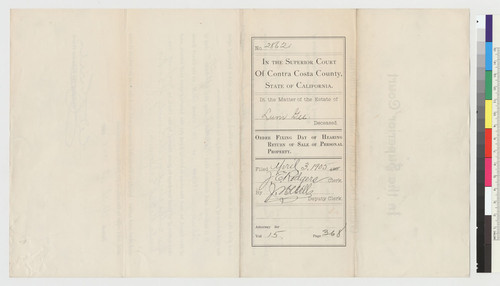 No. 2162
IN THE SUPERIOR COURT
Of Contra Costa County,
STATE OF CALIFORNIA.
In the Matter of the Estate of
Gee
Deceased
ORDER FIXING DAY OF HEARING
RETURN OF SALE OF PERSONAL
PROPERTY.
Filed April 3, 1905
J. E. Rodgers Clerk
By Deputy Clerk
Attorney for
Vol. 15. Page 368